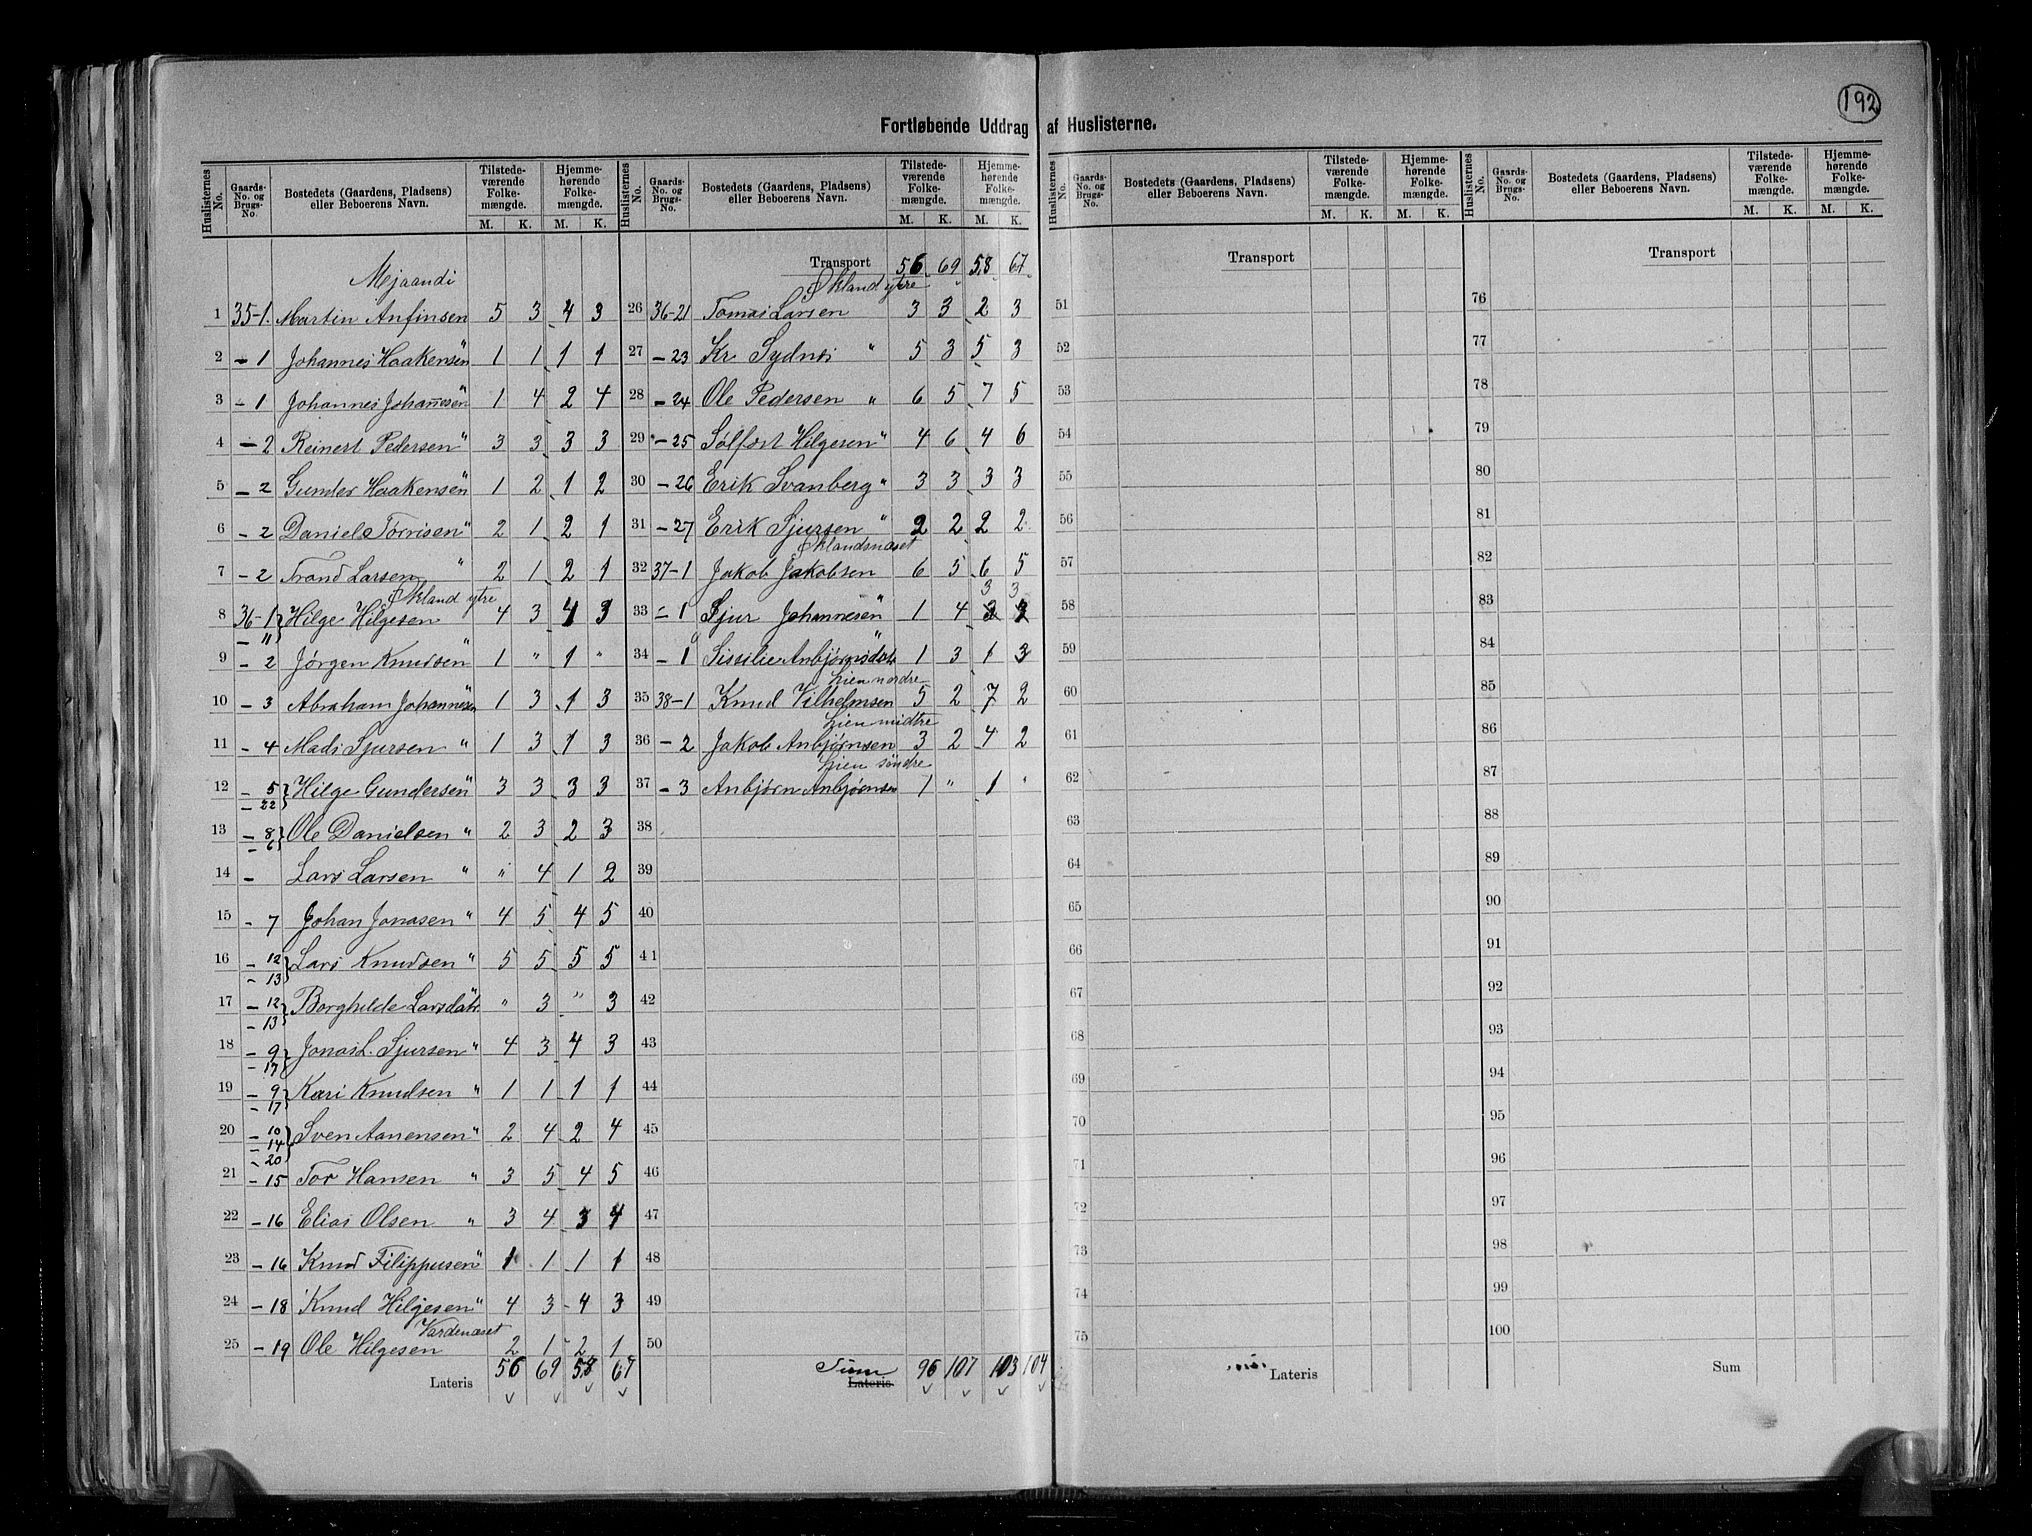 192
Fortløbende Uddrag af Huslisterne.
Huslisternes No. | Gaards- No. og Brugs- No. | Bostedets (Gaardens, Pladsens) eller Beboerens Navn. | Tilstede- værende Folke- mængde. M. K. | Hjemme- hørende Folke- mængde. M. K.
Mejaandi
1 35-1. Martin Anfinsen 5 3 4 3
2 - 1 Johannes Haakensen " 1 1 1 1
3 - 1 Johannes Johannesen " 1 4 2 4
4 - 2 Reinert Pedersen " 3 3 3 3
5 - 2 Gunder Haakensen " 1 2 1 2
6 - 2 Daniel Torrisen " 2 1 2 1
7 - 2 Trond Larsen " 2 1 2 1
Økland ytre
8 36-1 - 11 } Hilge Hilgesen 4 3 4 3
9 - 2 Jørgen Knudsen " 1 " 1 "
10 - 3 Abraham Johannesen 1 3 1 3
11 - 4 Mads Sjursen " 1 3 1 3
12 - 5 - 22 } Hilge Gundersen " 3 3 3 3
13 - 8 - 6 } Ole Danielsen " 2 3 2 3
14 - Lars Larsen " " 4 1 2
15 - 7 Johan Jonasen " 4 5 4 5
16 - 12 - 13 } Lars Knudsen " 5 5 5 5
17 - 12 - 13 } Borghilde Larsdatr " " 3 " 3
18 - 9 - 17 } Jonas L. Sjursen " 4 3 4 3
19 - 9 - 17 } Kari Knudsen " 1 1 1 1
20 - 10 - 14 - 20 } Sven Aanensen " 2 4 2 4
21 - 15 Tor Hansen " 3 5 4 5
22 - 16 Elias Olsen " 3 4 3 4
23 - 16 Knud Filippusen " 1 1 1 1
24 - 18 Knud Hilgesen " 4 3 4 3
Vardenæset
25 - 19 Ole Hilgesen 2 1 2 1
Lateris 56 69 58 67
Huslisternes No. | Gaards- No. og Brugs- No. | Bostedets (Gaardens, Pladsens) eller Beboerens Navn. | Tilstede- værende Folke- mængde. M. K. | Hjemme- hørende Folke- mængde. M. K.
Transport 56 69 58 67
Økland ytre
26 36-21 Tomas Larsen 3 3 2 3
27 - 23 Kr. Sydnes " 5 3 5 3
28 - 24 Ole Pedersen " 6 5 7 5
29 - 25 Solfest Hilgesen " 4 6 4 6
30 - 26 Erik Svanberg " 3 3 3 3
31 - 27 Erik Sjursen " 2 2 2 2
Øklandsnæset
32 37-1 Jakob Jakobsen 6 5 6 5
3 3
33 - 1 Sjur Johannesen " 1 4
34 - 1 Sissilie Anbjørnsdatr " 1 3 1 3
Lien nordre
35 38-1 Knud Vilhelmsen 5 2 7 2
Lien midtre
36 - 2 Jakob Anbjørnsen 3 2 4 2
Lien søndre
37 - 3 Anbjørn Anbjørnsen 1 " 1 "
38
39
40
41
42
43
44
45
46
47
48
49
50
Sum
Lateris. 96 107 103 104
Huslisternes No. | Gaards- No. og Brugs- No. | Bostedets (Gaardens, Pladsens) eller Beboerens Navn. | Tilstede- værende Folke- mængde. M. K. | Hjemme- hørende Folke- mængde. M. K.
Transport
51
52
53
54
55
56
57
58
59
60
61
62
63
64
65
66
67
68
69
70
71
72
73
74
75
Lateris
Huslisternes No. | Gaards- No. og Brugs- No. | Bostedets (Gaardens, Pladsens) eller Beboerens Navn. | Tilstede- værende Folke- mængde. M. K. | Hjemme- hørende Folke- mængde. M. K.
Transport
76
77
78
79
80
81
82
83
84
85
86
87
88
89
90
91
92
93
94
95
96
97
98
99
100
Sum